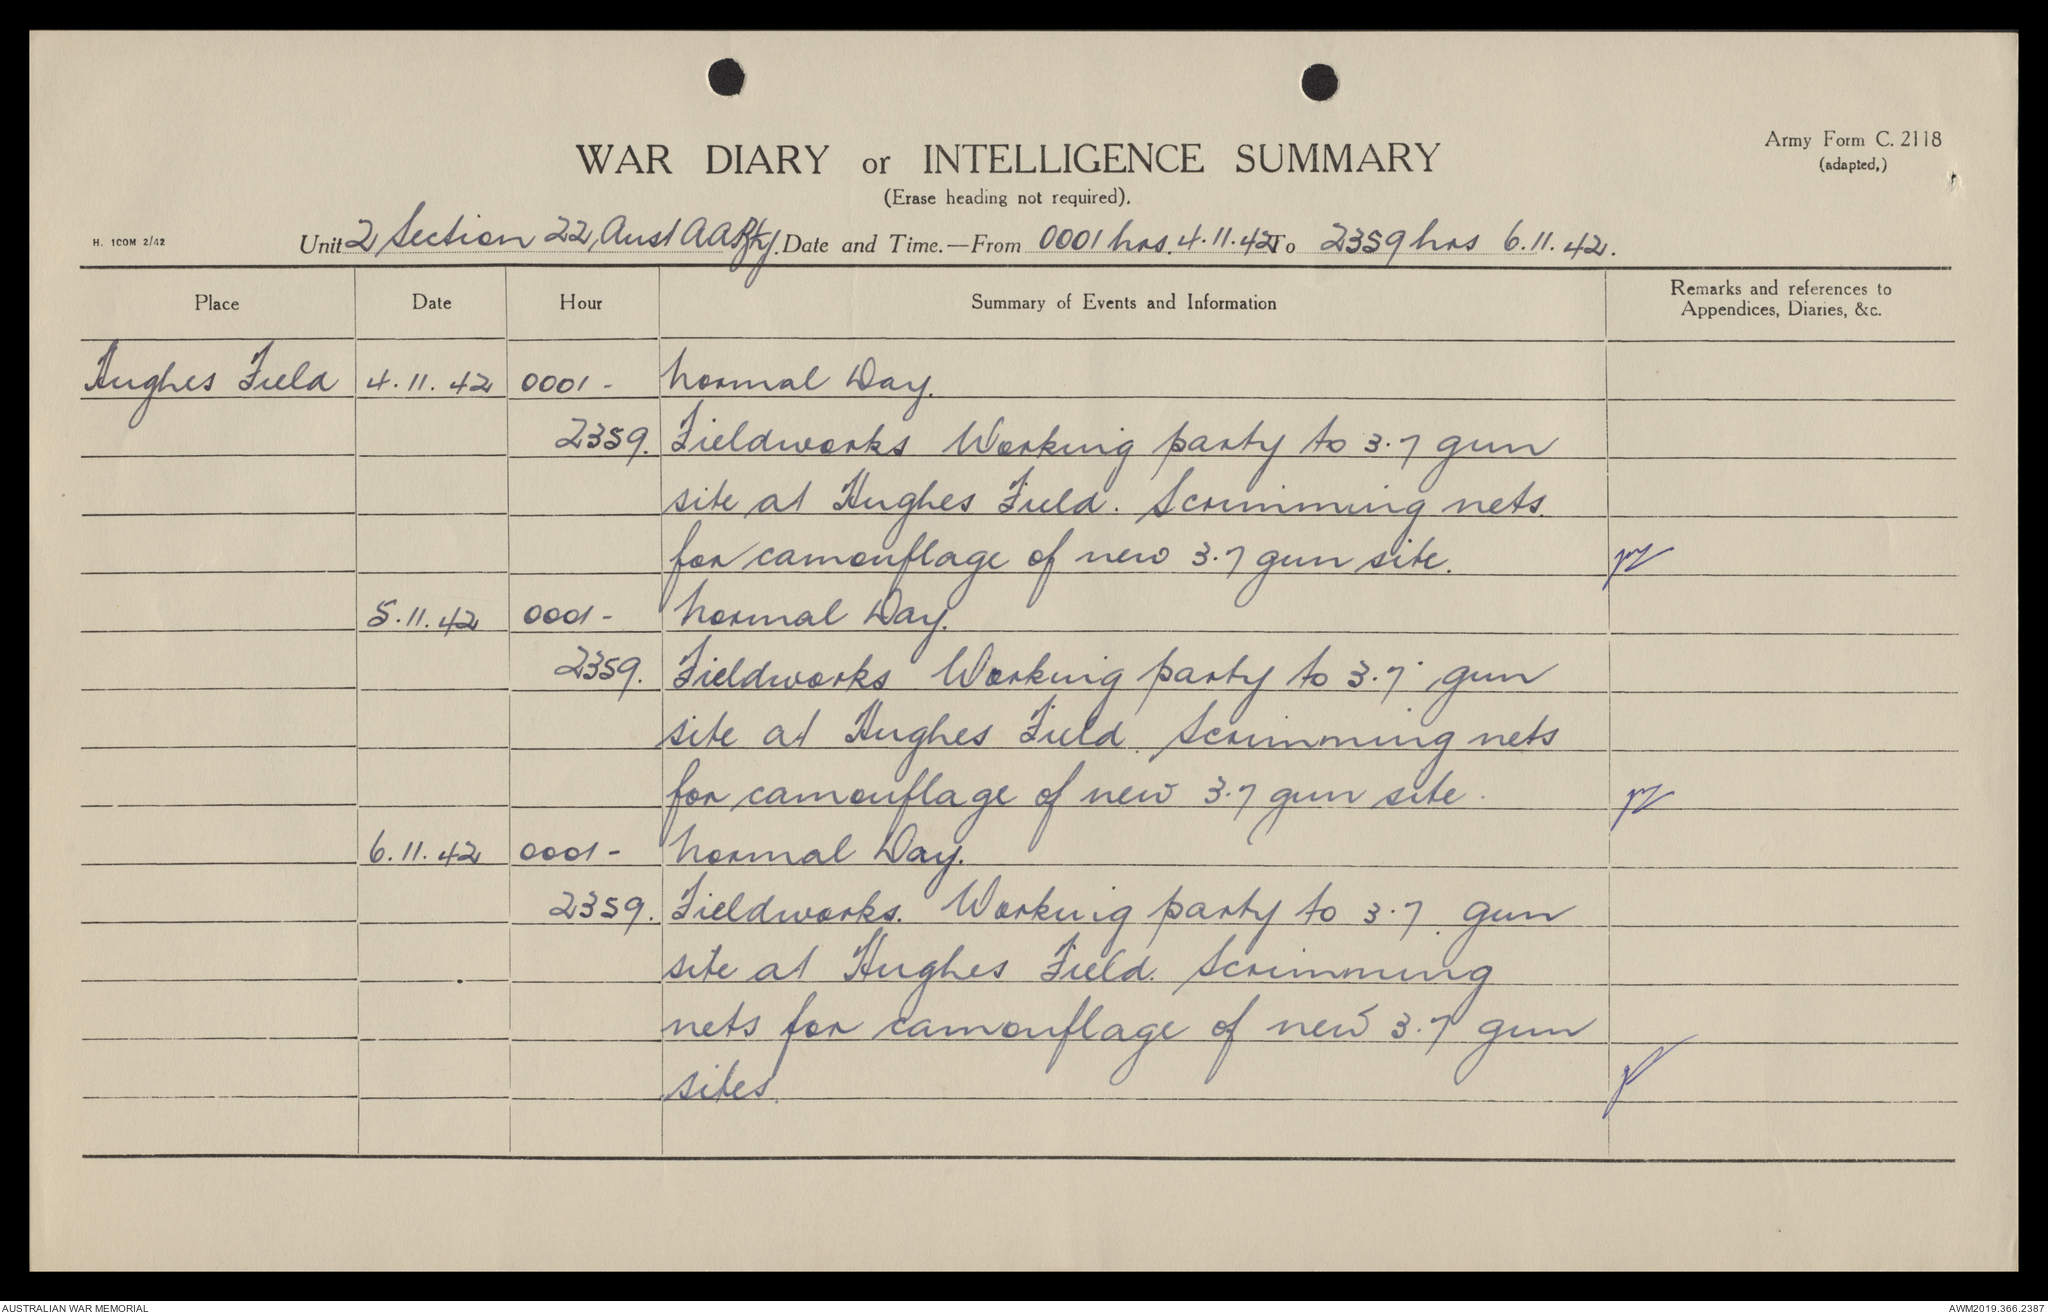 Army Form C. 2118
(adapted,)
WAR DIARY or INTELLIGENCE SUMMARY
(Erase heading not required).
H. 1COM 2/42
Unit 2 Section 22, Aust AA Bty. Date and Time.—From 0001 hrs. 4.11.42 To 2359 hrs 6.11.42.
Place Date Hour Summary of Events and Information Remarks and references to
Appendices, Diaries, &c.
Hughes Field 4.11.42 0001- Normal Day.
2359. Fieldworks Working party to 3.7 gun
site at Hughes Field. Scrimming nets.
for camouflage of new 3.7 gun site.
5.11.42 0001- Normal Day.
2359. Fieldworks Working party to 3.7 gun
site at Hughes Field. Scrimming nets
for camouflage of new 3.7 gun site.
6.11.42 0001- Normal Day.
2359. Fieldworks. Working party to 3.7 gun
site at Hughes Field. Scrimming
nets for camouflage of new 3.7 gun
sites.
AUSTRALIAN WAR MEMORIAL AWM2019.366.2387